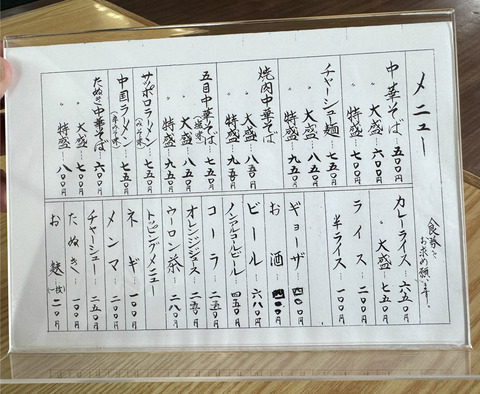 メニュー
中華そば…五〇〇円
〃 大盛…六〇〇円
〃 特盛…七〇〇円
チャーシュー麺…七五〇円
〃 大盛…八五〇円
〃 特盛…九五〇円
焼肉中華そば…七五〇円
〃 大盛…八五〇円
〃 特盛…九五〇円
五目中華そば(塩味)…七五〇円
〃 大盛…八五〇円
〃 特盛…九五〇円
サッポロラーメン(みそ味)…七五〇円
中国ラーメン(辛みそ味)…七五〇円
たぬき中華そば…六〇〇円
〃 大盛…七〇〇円
〃 特盛…八〇〇円
食券を
お求め願います!
カレーライス…六五〇円
〃 大盛…七五〇円
ライス…二〇〇円
半ライス…一〇〇円
ギョーザ…四〇〇円
お酒…四〇〇円
ビール…六八〇円
ノンアルコールビール…四五〇円
コーラ…二五〇円
オレンジジュース…二五〇円
ウーロン茶…二八〇円
トッピングメニュー
ネギ…一〇〇円
メンマ…二〇〇円
チャーシュー…二五〇円
たぬき…一〇〇円
お麩(一枚)二〇円